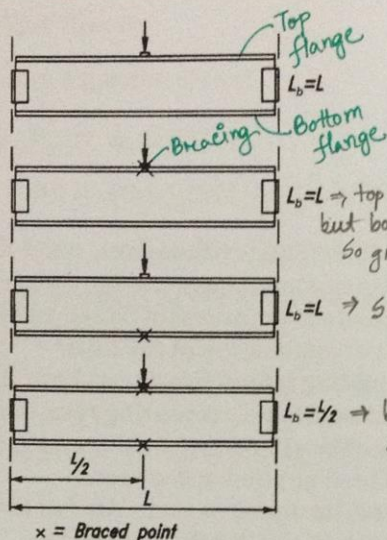 Top
flange
L_b=L
Bottom
flange
Bracing
L_b=L ⇒ top
but bo
So g
L_b=L ⇒ S
L_b=L/2 ⇒
L/2
L
× = Braced point